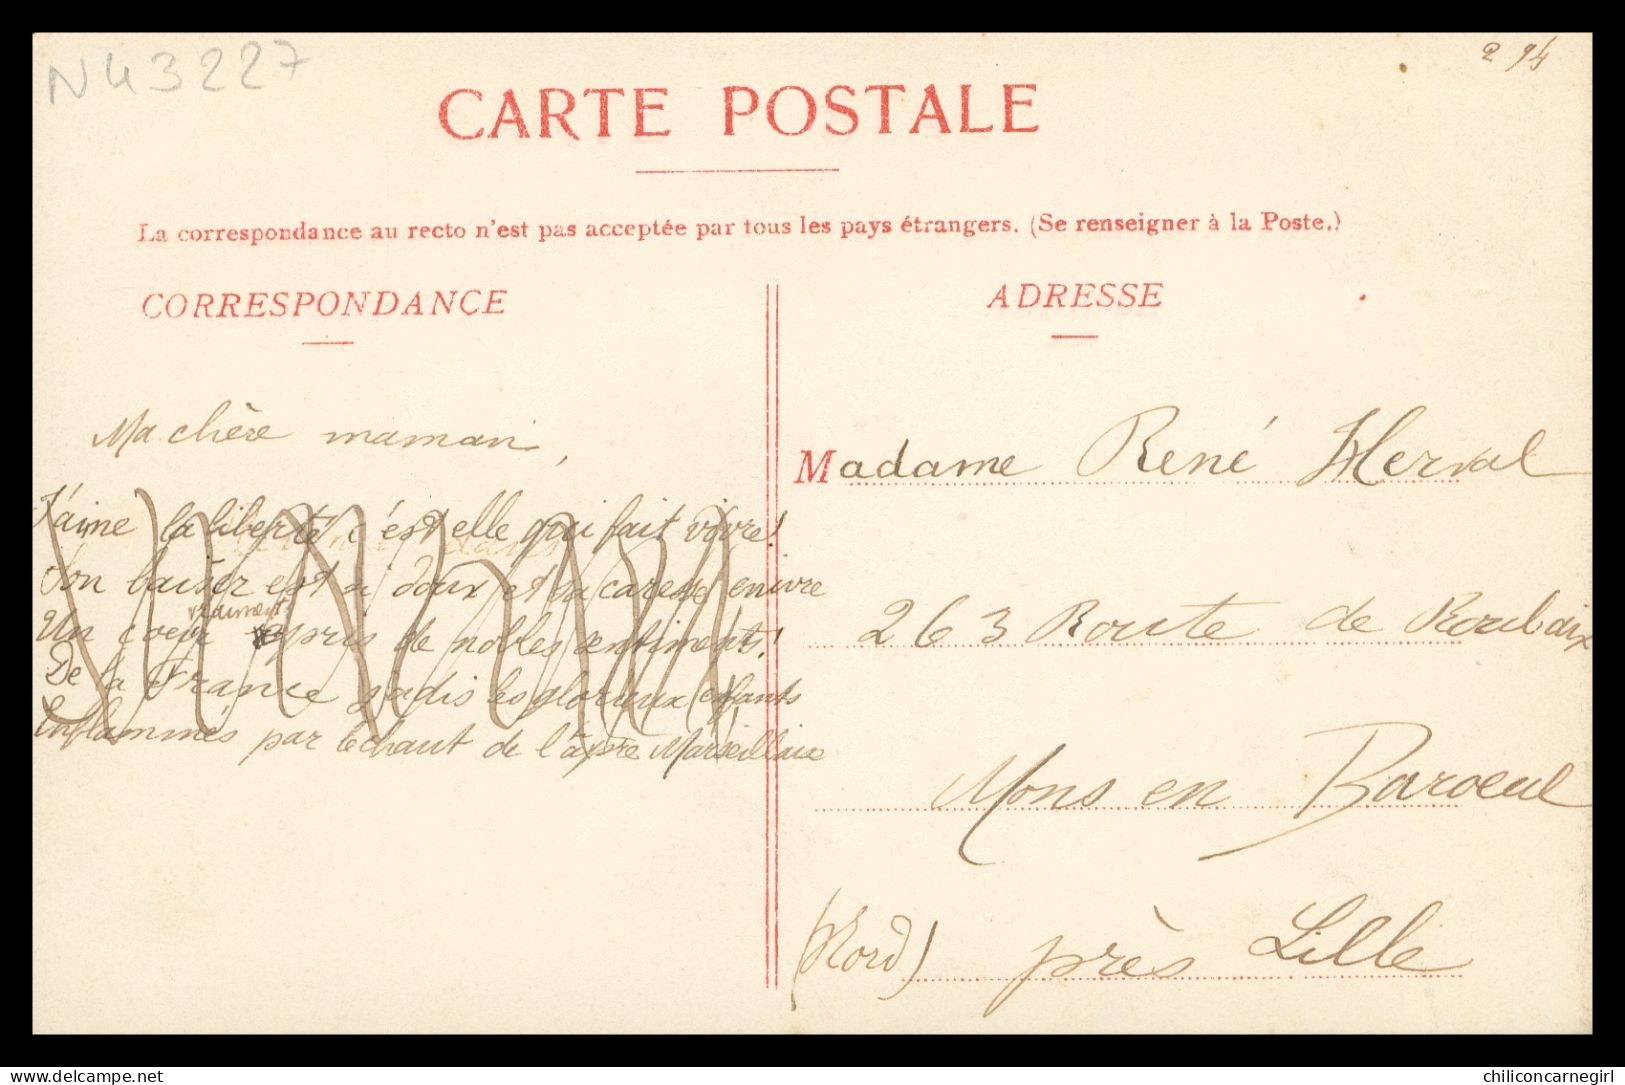 N43227
2 94
CARTE POSTALE
La correspondance au recto n'est pas acceptée par tous les pays étrangers. (Se renseigner à la Poste.)
CORRESPONDANCE
Ma chère maman,
J'aime la liberté c'est elle qui fait vivre!
Son baiser est si doux et sa caresse enivre
vraiment
Un coeur épris de nobles sentiments!
De la France jadis les glorieux enfants
Enflammés par le chant de l'âpre Marseillaise
ADRESSE
Madame René Herval
263 Route de Roubaix
Mons en Baroeul
(Nord) près Lille
delcampe.net
chiliconcarnegirl